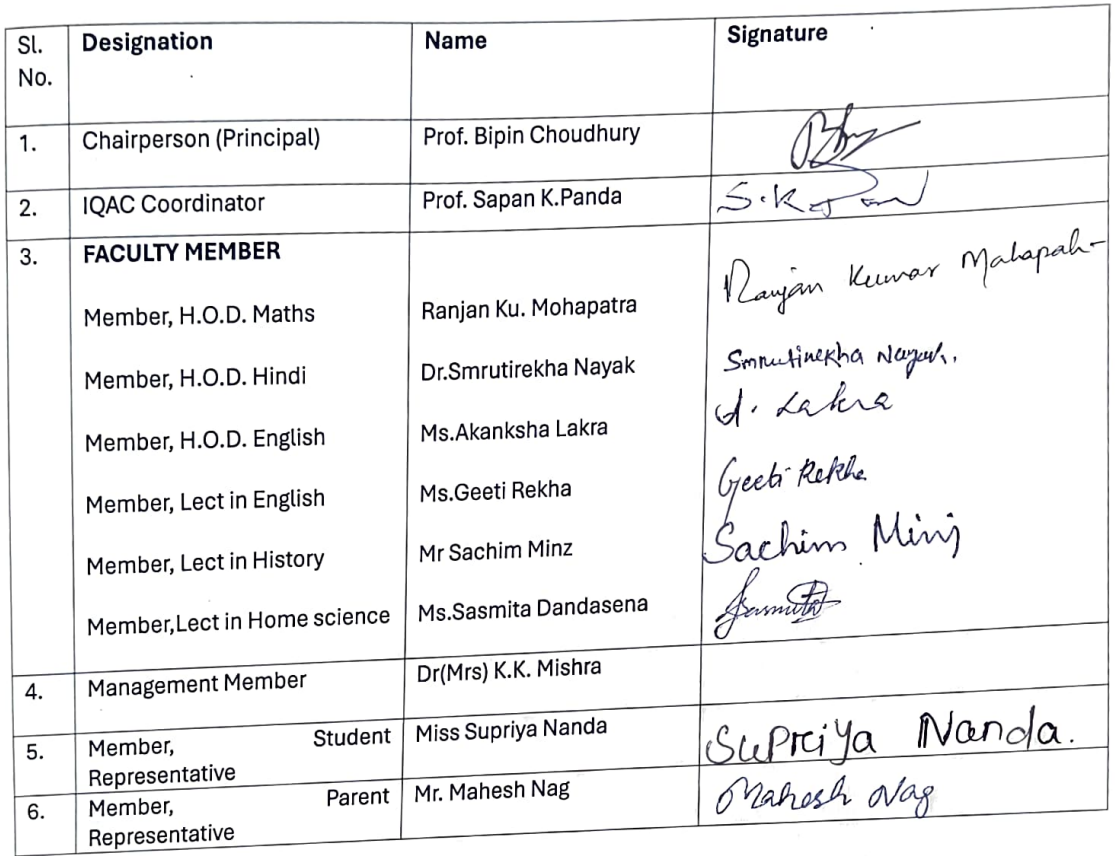 Sl. No. Designation Name Signature
1. Chairperson (Principal) Prof. Bipin Choudhury
2. IQAC Coordinator Prof. Sapan K.Panda S.K
3. FACULTY MEMBER
Member, H.O.D. Maths Ranjan Ku. Mohapatra Ranjan Kumar
Member, H.O.D. Hindi Dr.Smrutirekha Nayak Smrutirekha Nayak.
Member, H.O.D. English Ms.Akanksha Lakra A. Lakra
Member, Lect in English Ms.Geeti Rekha Geeti Rekha
Member, Lect in History Mr Sachim Minz Sachim Minj
Member,Lect in Home science Ms.Sasmita Dandasena
4. Management Member Dr(Mrs) K.K. Mishra
5. Member, Student Miss Supriya Nanda Supriya Nanda.
Representative
6. Member, Parent Mr. Mahesh Nag Mahesh Nag
Representative